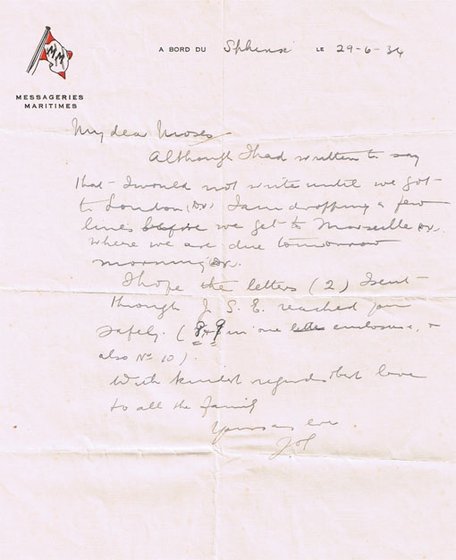 MM
MESSAGERIES
MARITIMES
A BORD DU Sphinx LE 29-6-34
My dear Moses
Although I had written to say
that I would not write until we got
to London (DV) I am dropping a few
lines before we get to Marseille DV.
where we are due tomorrow
morning DV.
I hope the letters (2) I sent
through J. S. E. reached you
safely. (8 & 9 in one enclosure, &
also No 10).
With kindest regards & best love
to all the family
Yours as ever